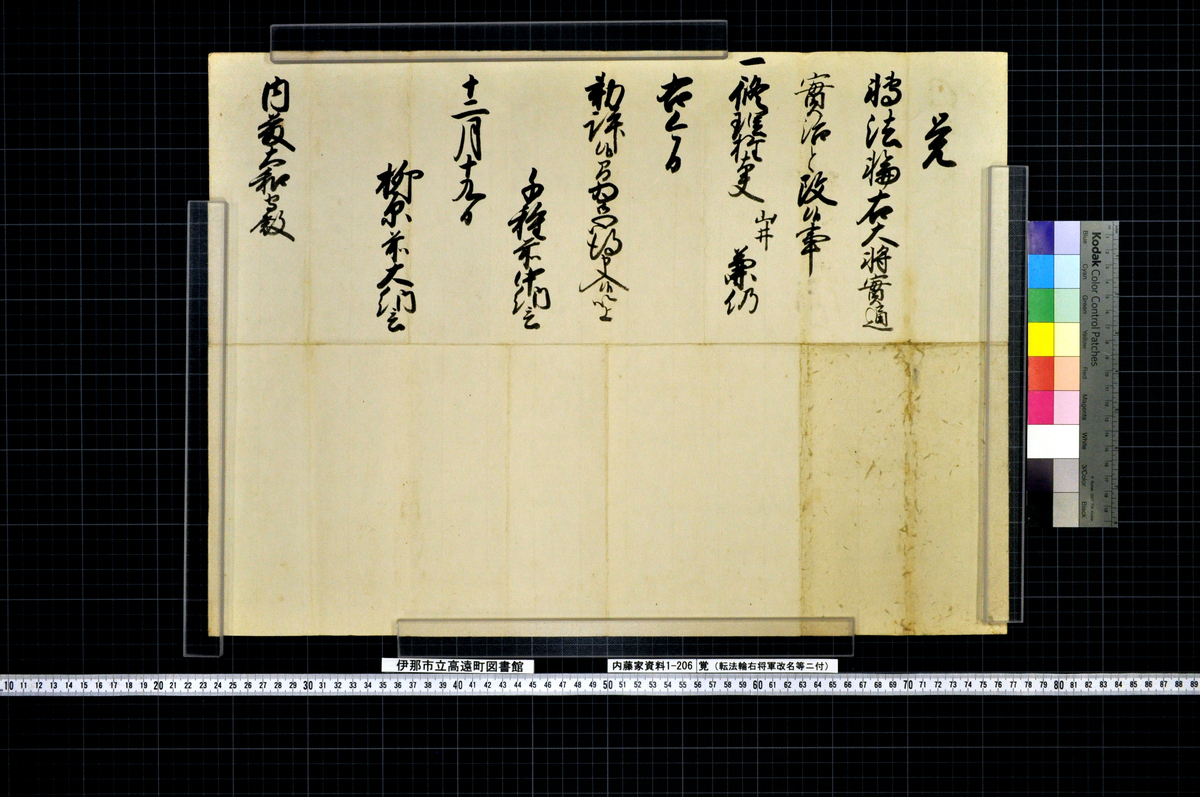 覚
轉法輪右大将實通
實治と改候事
一修理権大夫 山井 兼仍
右今日
勅許候
千種前中納言
十二月十九日
柳原前大納言
内藤大和守殿
伊那市立高遠町図書館
内藤家資料1-206 覚（転法輪右将軍改名等ニ付）
Kodak Color Control Patches
Blue Cyan Green Yellow Red Magenta White 3/Color Black
10 11 12 13 14 15 16 17 18 19 20 21 22 23 24 25 26 27 28 29 30 31 32 33 34 35 36 37 38 39 40 41 42 43 44 45 46 47 48 49 50 51 52 53 54 55 56 57 58 59 60 61 62 63 64 65 66 67 68 69 70 71 72 73 74 75 76 77 78 79 80 81 82 83 84 85 86 87 88 89